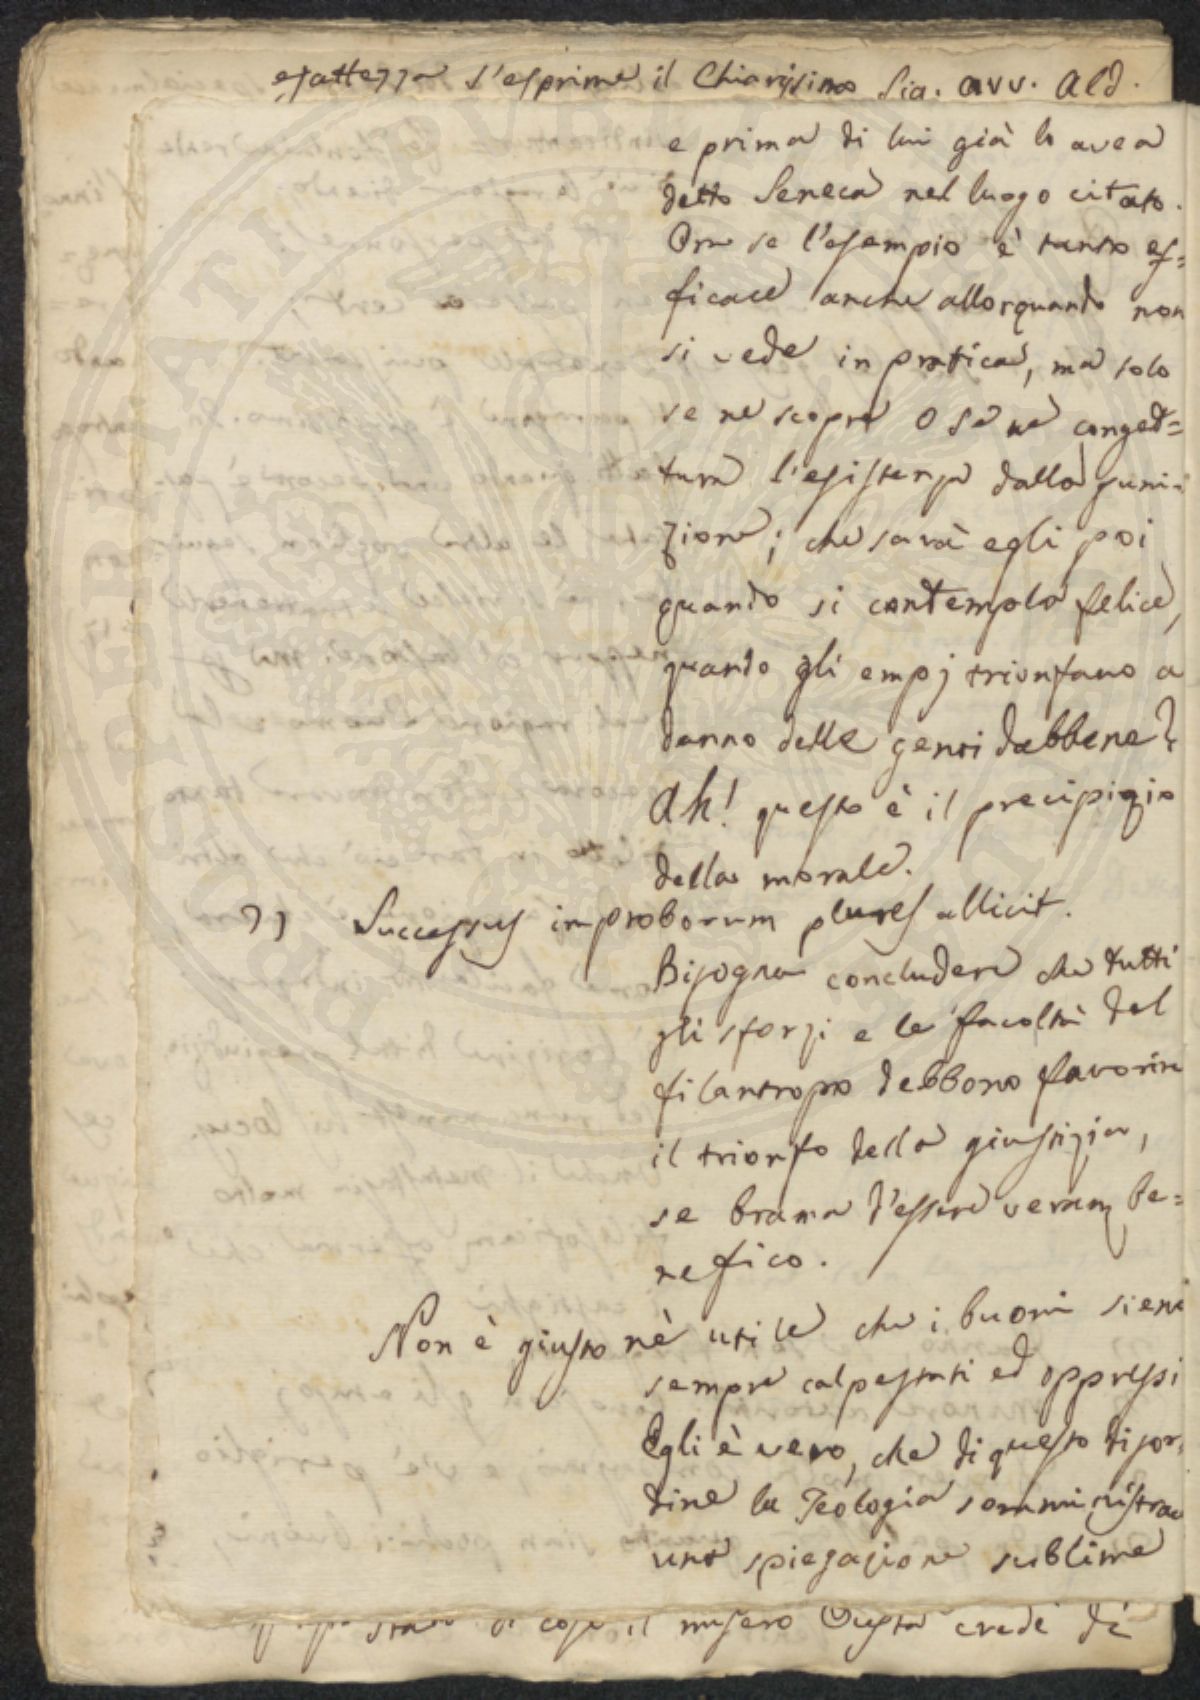 esattezza s'esprime il Chiarissimo Sig. avv. Ald.
e prima di lui già lo avea
detto Seneca nel luogo citato.
Ora se l'esempio è tanto ef=
ficace anche allorquando non
si vede in pratica, ma solo
se ne scopre o se ne conget=
tura l'esistenza dalla puni=
zione; che sarà egli poi
quando si contempla felice,
quando gli empj trionfano a
danno delle genti dabbene?
Ah! questo è il precipizio
della morale.
Successus improborum plures allicit.
Bisogna concludere che tutti
gli sforzi e le facoltà del
filantropo debbono favorire
il trionfo della giustizia,
se brama d'essere veram be=
nefico.
Non è giusto nè utile che i buoni sieno
sempre calpestati ed oppressi
Egli è vero, che di questo disor=
dine la Teologia somministra
una spiegazione sublime
stato di cose il misero Oreste crede di
POSTERITATI PVBLICAE